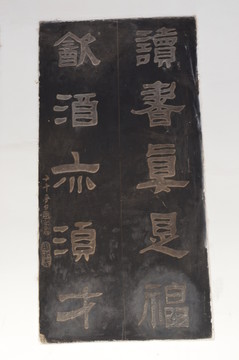 讀書真是福
飲酒亦須才